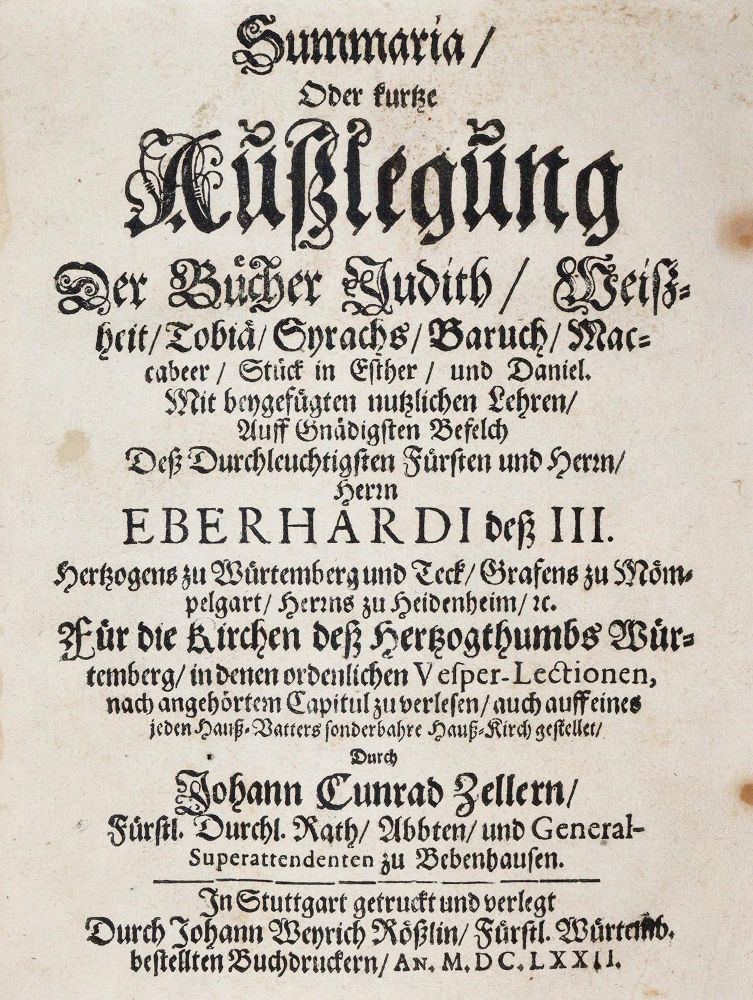 Summaria/
Oder kurtze
Außlegung
Der Bücher Judith/ Weiß-
heit/ Tobiä/ Syrachs/ Baruch/ Mac-
cabeer/ Stück in Esther/ und Daniel.
Mit beygefügten nutzlichen Lehren/
Auff Gnädigsten Befelch
Deß Durchleuchtigsten Fürsten und Herrn/
Herrn
EBERHARDI deß III.
Hertzogens zu Würtemberg und Teck/ Grafens zu Möm-
pelgart/ Herrns zu Heidenheim/ ꝛc.
Für die Kirchen deß Hertzogthumbs Wür-
temberg/ in denen ordenlichen Vesper-Lectionen,
nach angehörtem Capitul zu verlesen/ auch auff eines
jeden Hauß-Vatters sonderbahre Hauß-Kirch gestellet/
Durch
Johann Cunrad Zellern/
Fürstl. Durchl. Rath/ Abbten/ und General-
Superattendenten zu Bebenhausen.
In Stuttgart getruckt und verlegt
Durch Johann Weyrich Rößlin/ Fürstl. Würtemb.
bestellten Buchdruckern/ AN. M. DC. LXXII.